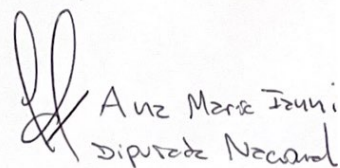 Ana María Ianni
Diputada Nacional